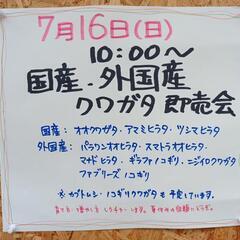 7月16日(日)
10:00〜
国産・外国産
クワガタ 即売会
国産：オオクワガタ・アマミヒラタ・ツシマヒラタ
外国産：パラワンオオヒラタ・スマトラオオヒラタ・
マナドヒラタ・ギラファノコギリ・ニジイロクワガタ
ファブリースノコギリ
※カブトムシ・ノコギリクワガタも予定しています。
育て方・増やし方レクチャーします。夏休みの宿題にどうぞ。